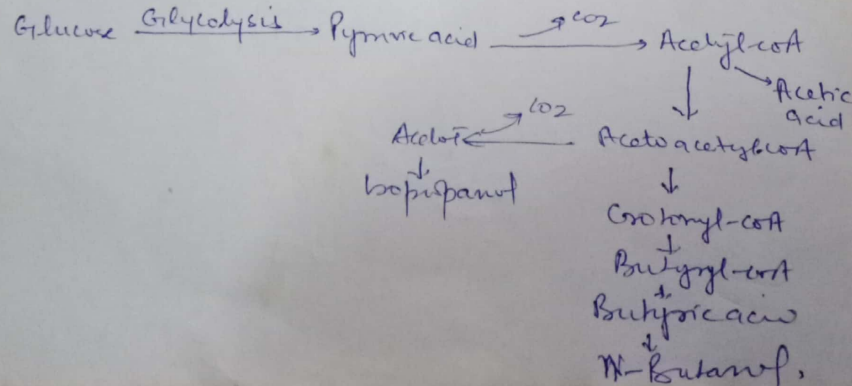 Glucose Glycolysis → Pyruvic acid → CO2 → Acetyl-coA
Acetic
acid
CO2
Acetoacetyl-coA
↓
Isopropanol
↓
Crotonyl-coA
↓
Butyryl-coA
↓
Butyric acid
↓
N-Butanol,